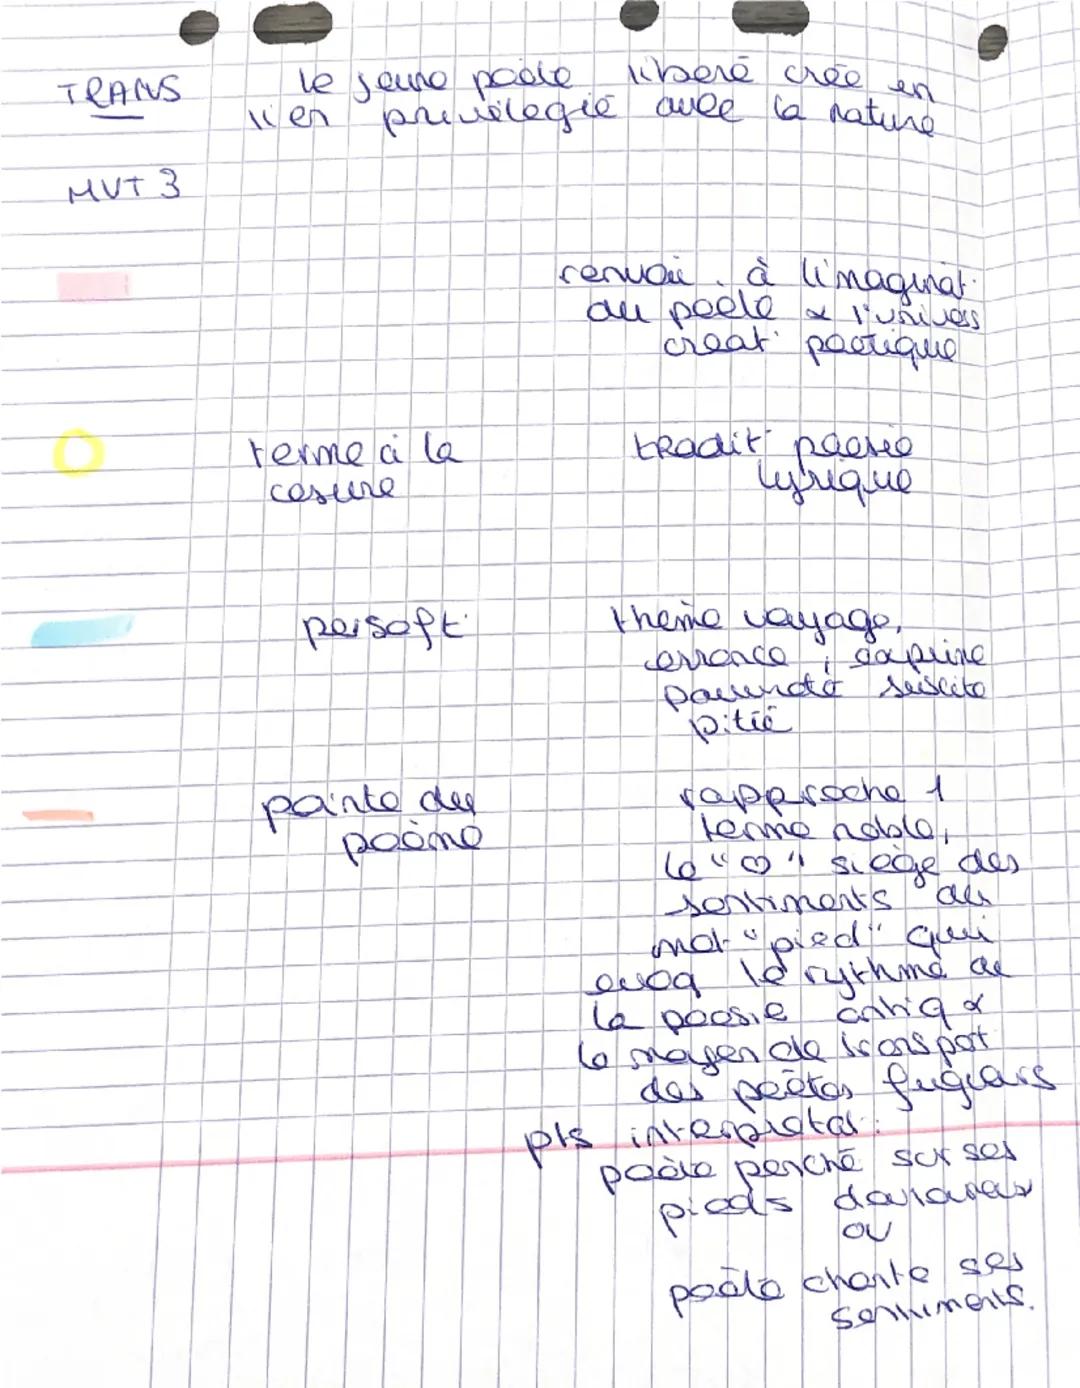 TRANS le jeune poète libéré crée en
lien privilégié avec la nature
MVT 3
renvoi à l'imaginat°
du poète & l'univers
creat° poétique
terme à la tradit° poésie
cesure lyrique
persoft° theme voyage,
errance, exprime
pauvreté suscite
pitié
pointe du rapproche 1
poème terme noble,
le "♡" siège des
sentiments au
mot "pied" qui
evoq le rythme de
la poesie antiq &
le moyen de transpot
des poètes fugeurs
pls interpretat° :
poète penché sur ses
pieds douloureux
ou
poète chante ses
sentiments.